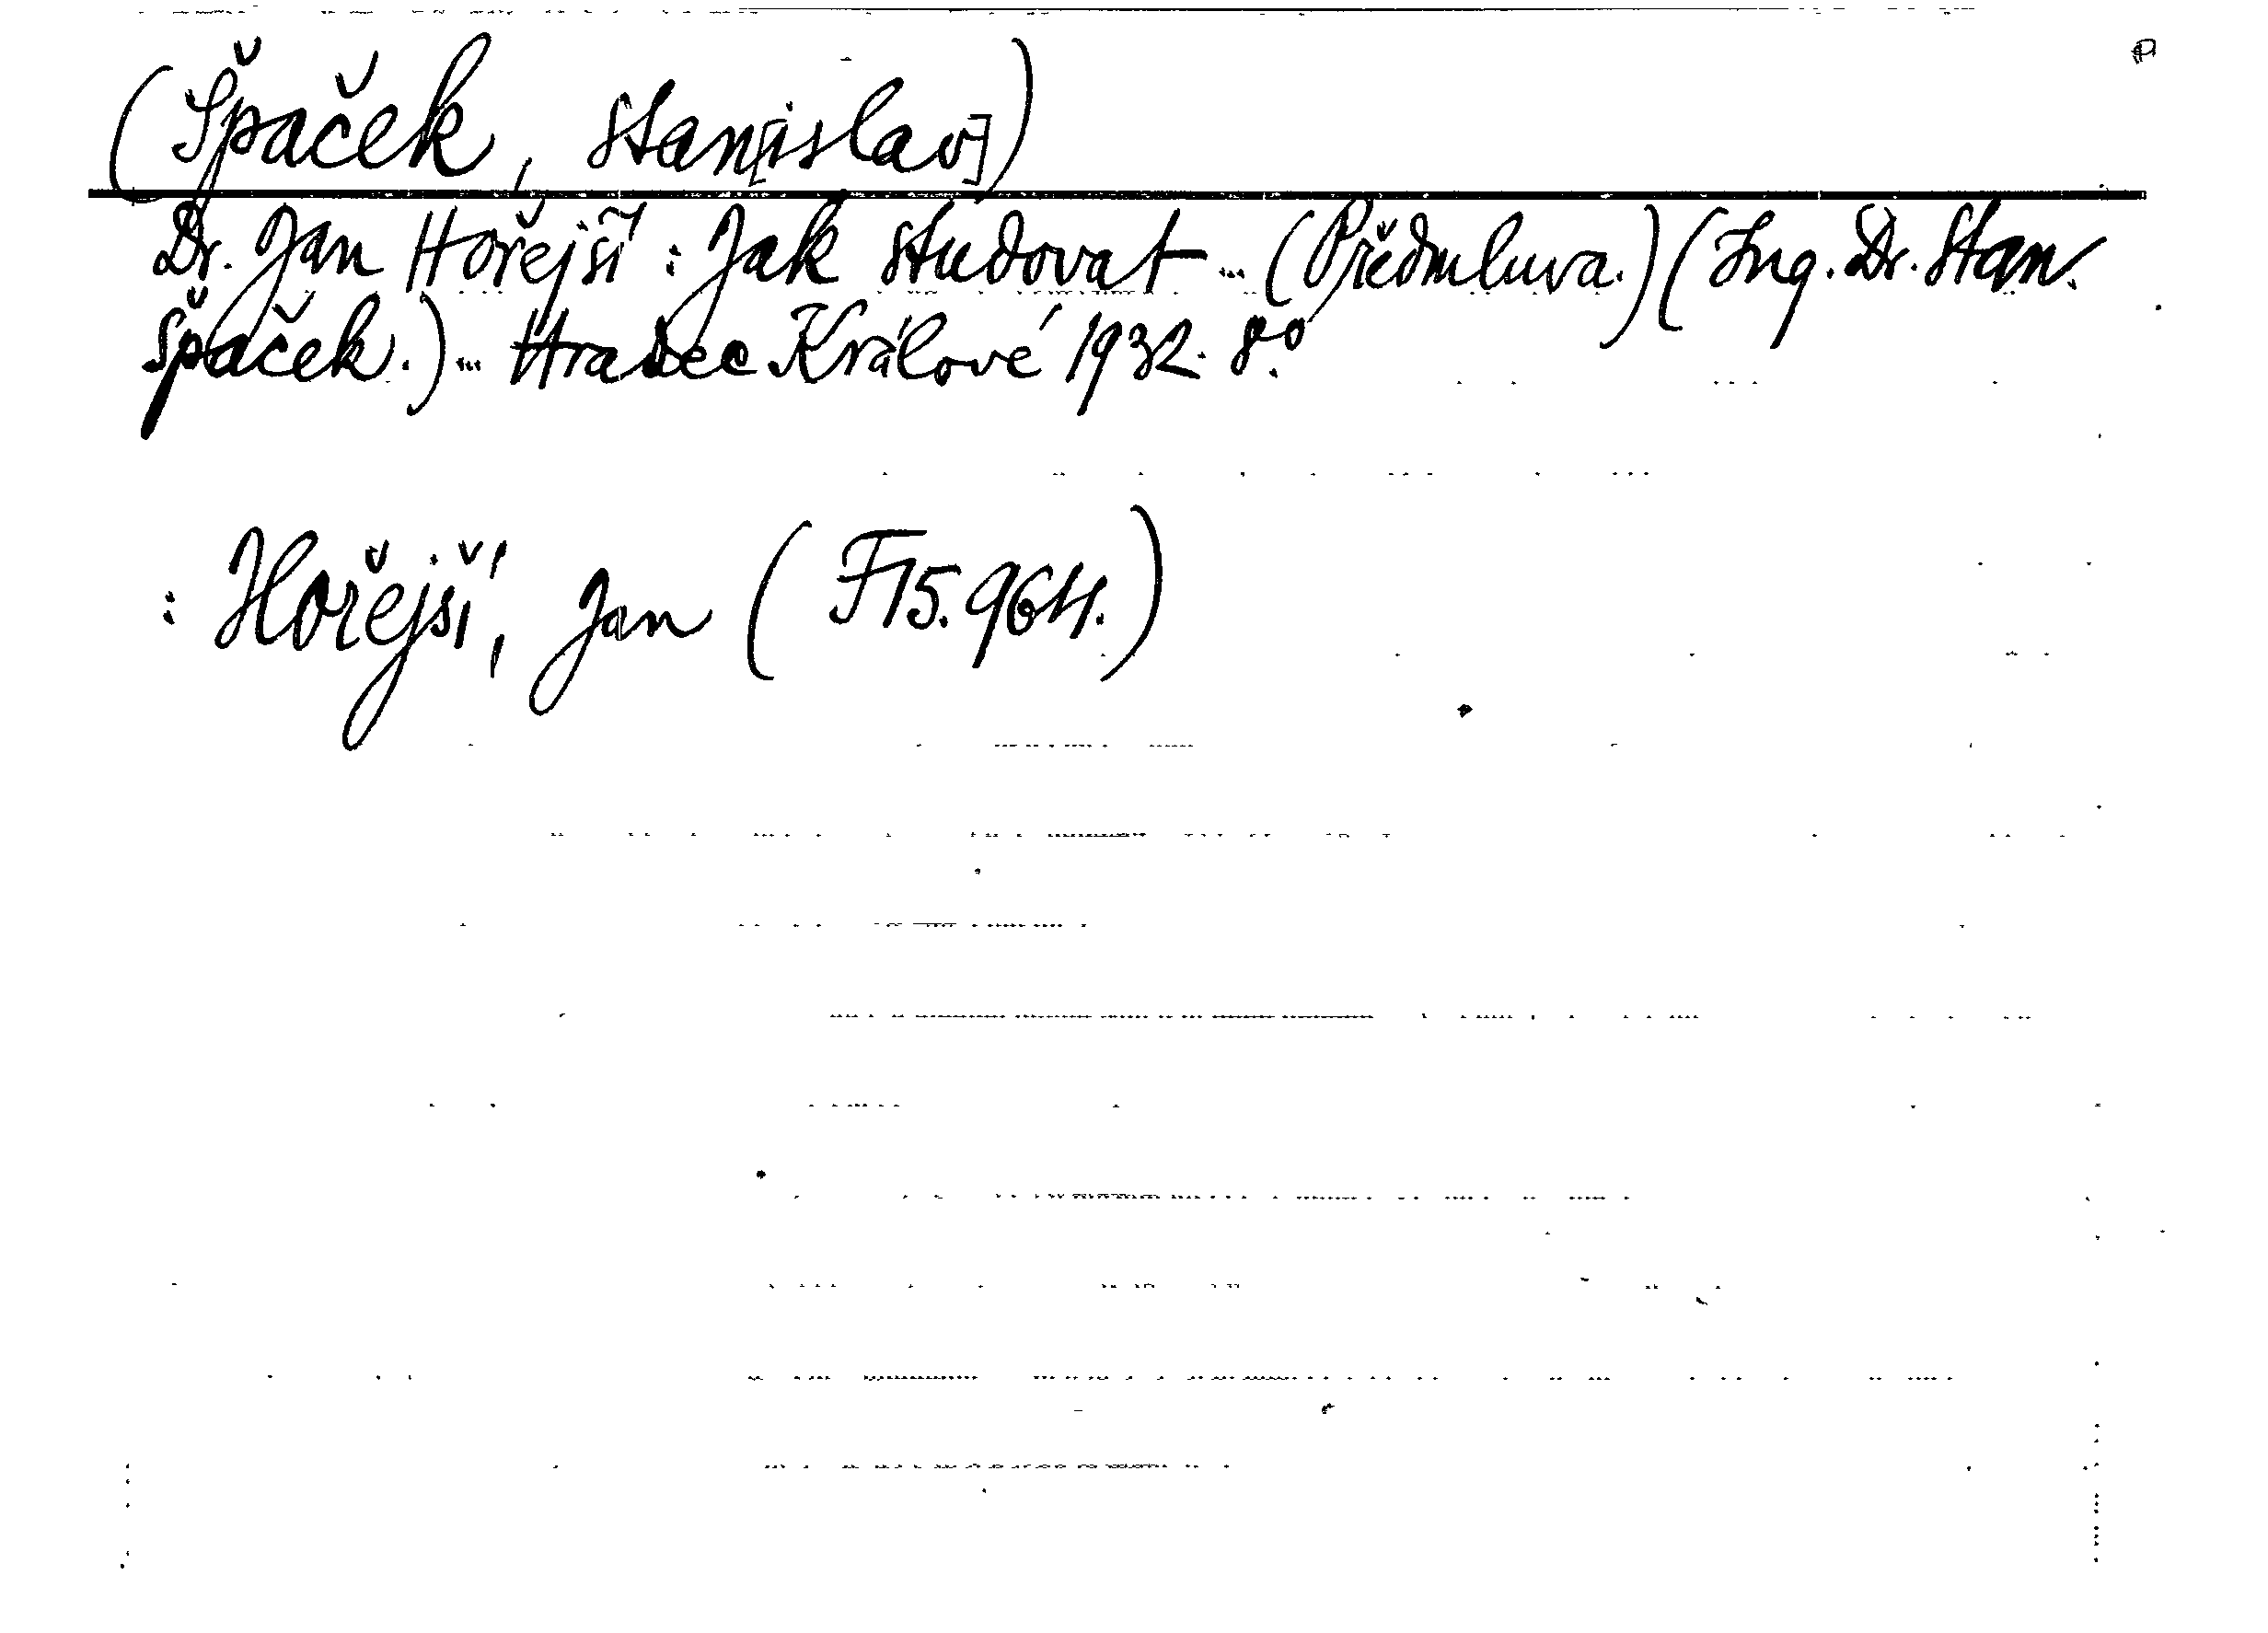 (Špaček, Stan[islav])
Dr. Jan Hořejší: Jak studovat ... (Předmluva.) (Ing. Dr. Stan.
Špaček.) ... Hradec Králové 1932. 8°.
: Hořejší, Jan (F 15.964.)